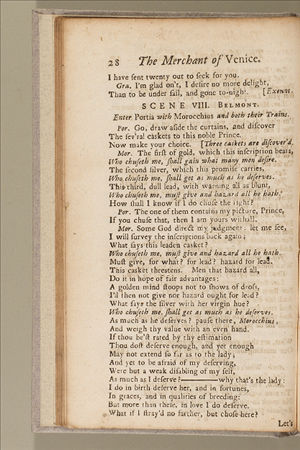 28 The Merchant of Venice.
I have sent twenty out to seek for you.
Gra. I'm glad on't, I desire no more delight,
Than to be under sail, and gone to-night. [Exeunt.
SCENE VIII. BELMONT.
Enter Portia with Morocchius and both their Trains.
Por. Go, draw aside the curtains, and discover
The sev'ral caskets to this noble Prince.
Now make your choice. [Three caskets are discover'd.
Mor. The first of gold, which this inscription bears,
Who chuseth me, shall gain what many men desire.
The second silver, which this promise carries,
Who chuseth me, shall get as much as he deserves.
This third, dull lead, with warning all as blunt,
Who chuseth me, must give and hazard all he hath.
How shall I know if I do chuse the right?
Por. The one of them contains my picture, Prince,
If you chuse that, then I am yours withall.
Mor. Some God direct my judgment! let me see,
I will survey the inscriptions back again;
What says this leaden casket?
Who chuseth me, must give and hazard all he hath.
Must give, for what? for lead? hazard for lead.
This casket threatens. Men that hazard all,
Do it in hope of fair advantages:
A golden mind stoops not to shows of dross,
I'll then not give nor hazard ought for lead?
What says the silver with her virgin hue?
Who chuseth me, shall get as much as he deserves.
As much as he deserves? pause there, Morocchius,
And weigh thy value with an even hand.
If thou be'st rated by thy estimation
Thou dost deserve enough, and yet enough
May not extend so far as to the lady;
And yet to be afraid of my deserving,
Were but a weak disabling of my self,
As much as I deserve?——why that's the lady:
I do in birth deserve her, and in fortunes,
In graces, and in qualities of breeding:
But more than these, in love I do deserve.
What if I stray'd no farther, but chose here?
Let's